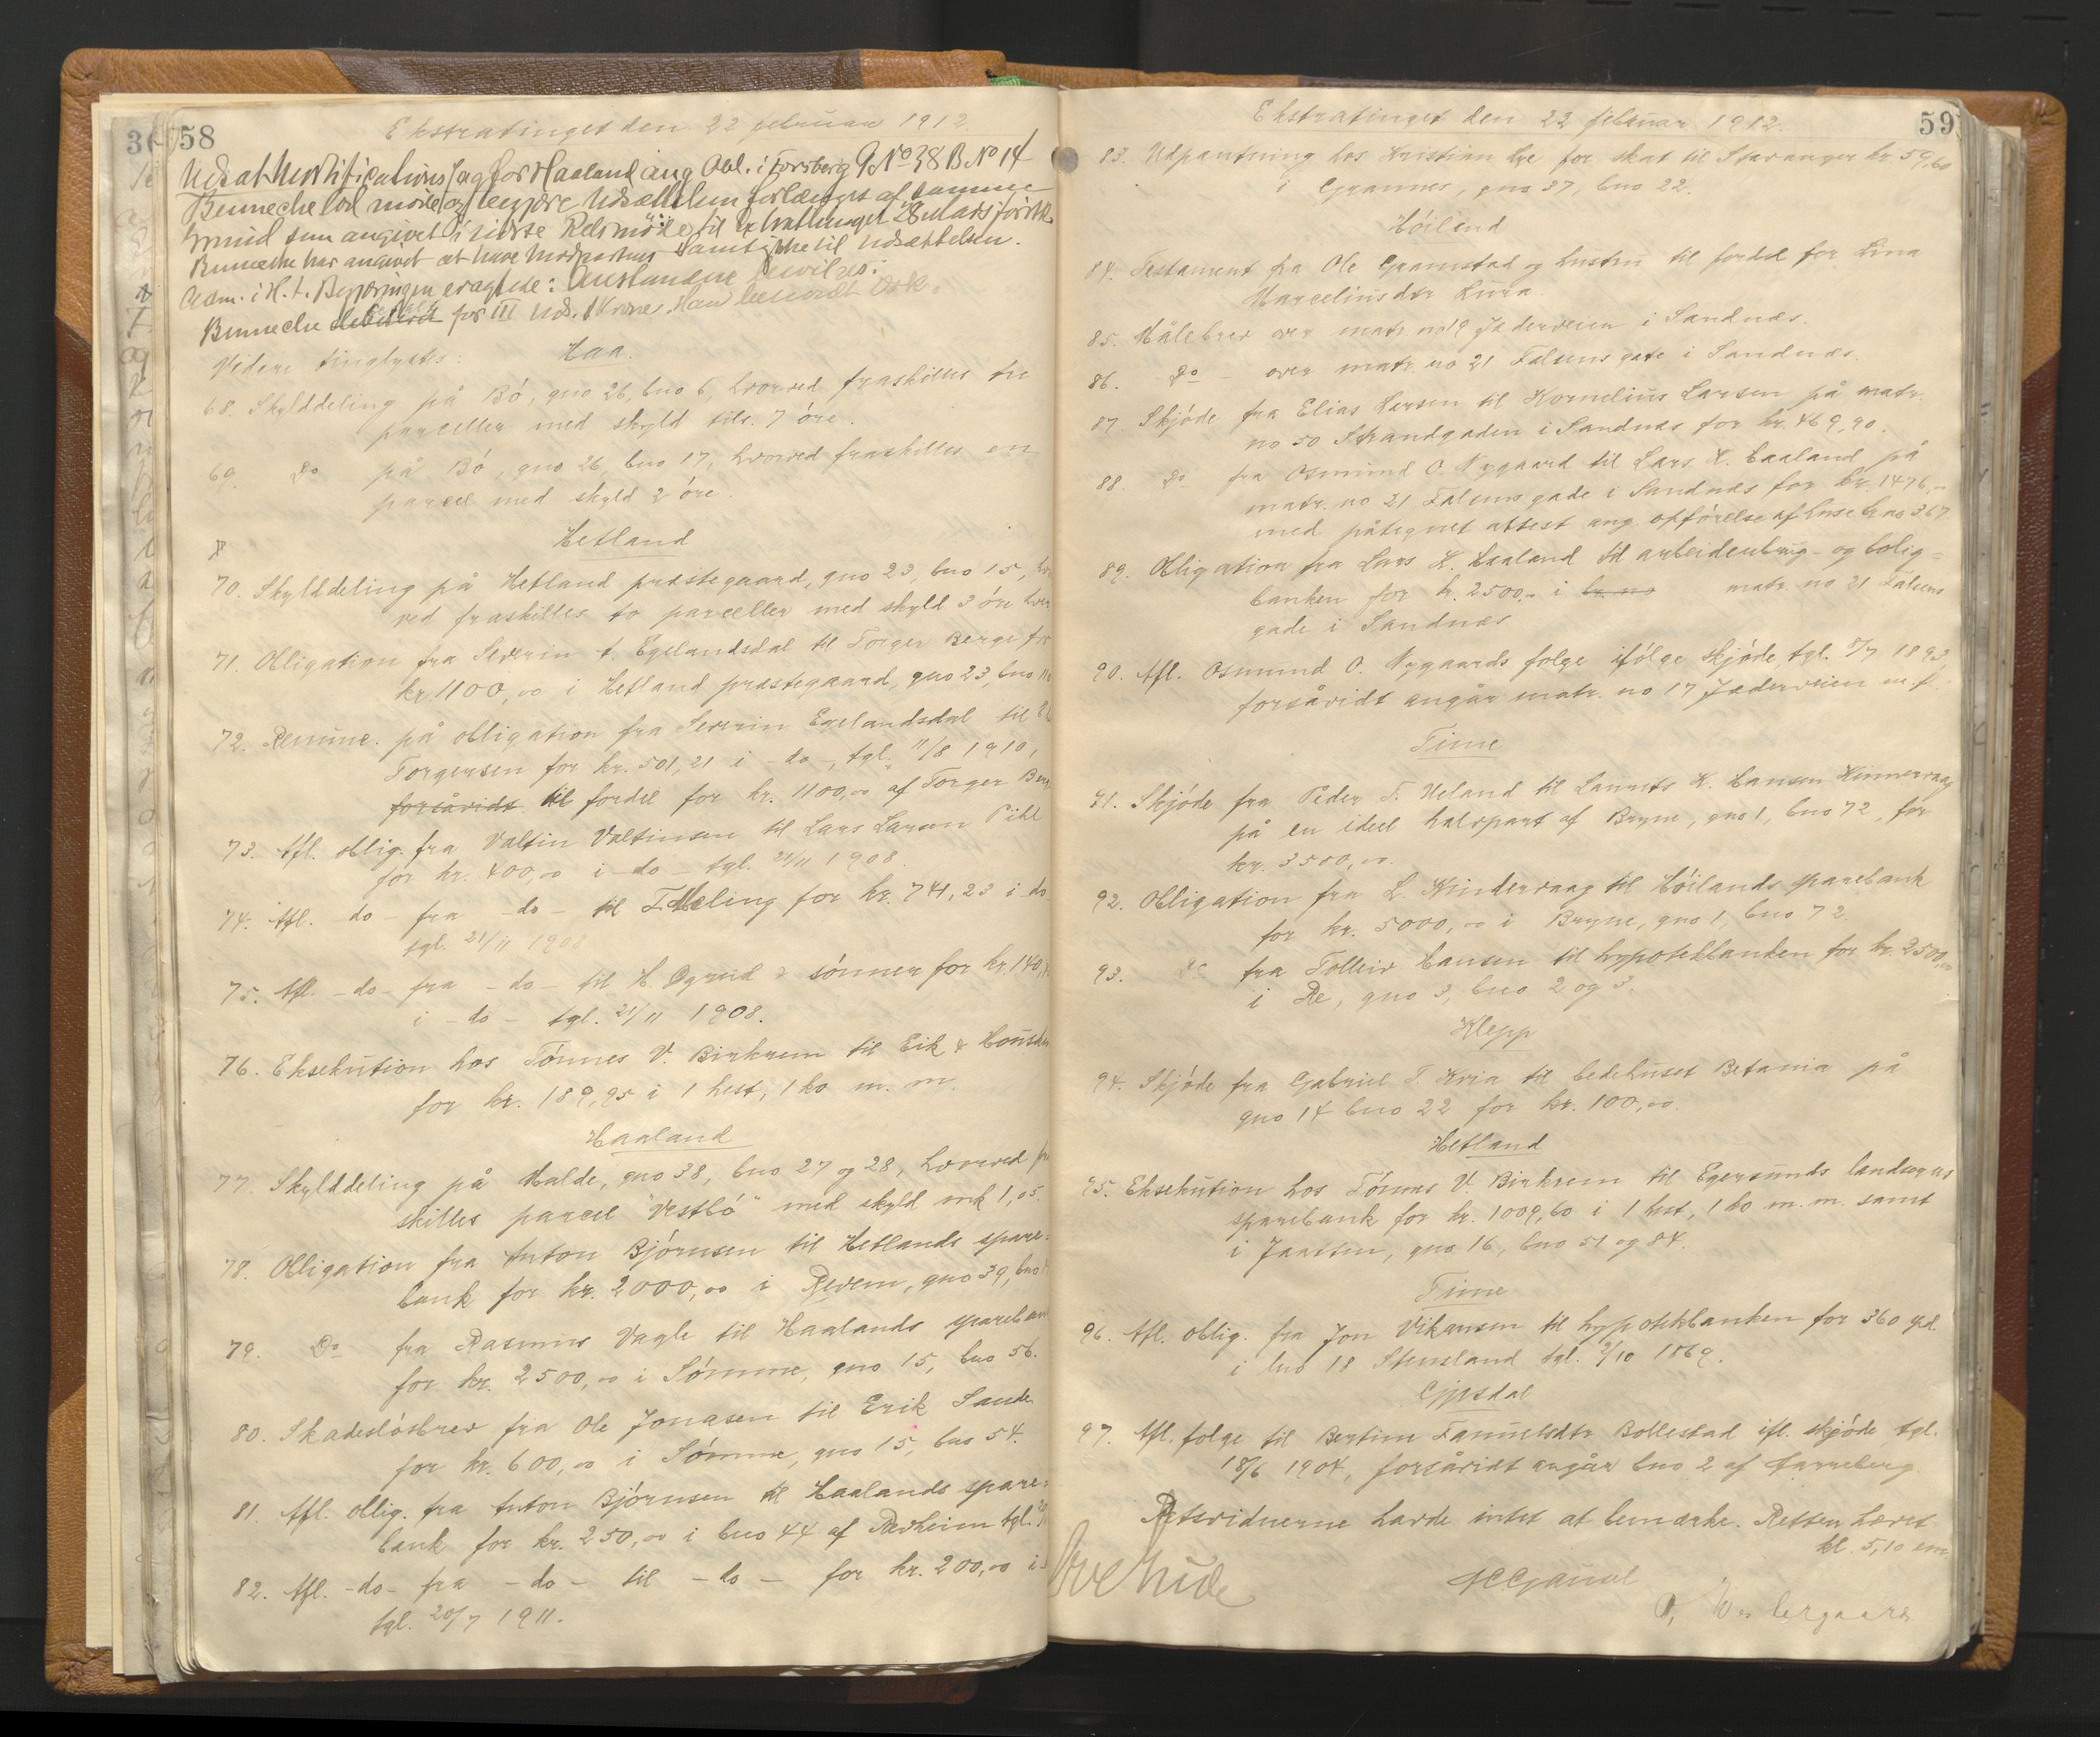 58
Ekstratinget den 22 februar 1912.
Udsat Mortifications sag for Haaland ang Obl. i Forsberg GNo 38 BNo 14
Benneche lod møde og begjære Udsættelsen forlænget af samme
Grund som angivet i sidste Retsmöde til Extrattinget 28 Mars førstk.
Benneche har angivet at have Modpartens Samtykke til Udsættelsen.
Adm. i H. t. Begjæringen eragtede: Anstanden bevilges.
Benneche debiteret for III Uds. 1 Krone
Videre tinglystes: Haa.
68. Skylddeling på Bö, gno 26, bno 6, hvorved fraskilles tre
parceller med skyld tils. 7 öre.
69. Do på Bö, gno 26, bno 17, hvorved fraskilles en
parcel med skyld 2 öre.
Hetland
70. Skylddeling på Hetland præstegaard, gno 23, bno 15, hvor
ved fraskilles to parceller med skyld 3 öre hver
71. Obligation fra Severin t. Egelandsdal til Torger Berge for
kr 1100,00 i Hetland præstegaard, gno 23, bno
72. Renunc. på obligation fra Severin Egelandsdal til
Torgersen for kr. 501,21 i -do-, tgl. 11/8 1910,
forsåvidt til fordel for kr. 1100,00 af Torger Berge
73. Afl. oblig. fra Valtin Valtinsen til Lars Larsen Pihl
for kr. 400,00 i -do- tgl. 21/11 1908.
74. Afl. -do- fra -do- til T. Meling for kr. 741,23 i do
tgl. 21/11 1908
75. Afl. -do- fra -do- til H. Ogrud & sönner for kr. 140,
i -do- tgl. 21/11 1908.
76. Eksekution hos Tönnes V. Birkrem til Eik & Hausken
for kr. 189,95 i 1 hest, 1 ko m. m.
Haaland
77. Skylddeling på Malde, gno 38, bno 27 og 28, hvorved fra
skilles parcel "Vestbö" med skyld mk 1,05.
78. Obligation fra Anton Björnsen til Hetlands spare-
bank for kr. 2000,00 i Revem, gno 39, bno
79. Do fra Rasmus Vagle til Haalands sparebank
for kr. 2500,00 i Sömme, gno 15, bno 56.
80. Skadeslösbrev fra Ole Jonasen til Erik Sande
for kr. 600,00 i Sömme, gno 15, bno 54.
81. Afl. oblig. fra Anton Björnsen til Haalands spare-
bank for kr. 250,00 i bno 44 af Revheim tgl.
82. Afl. -do- fra -do- til -do- for kr. 200,00 i
tgl. 20/7 1911.
59
Ekstratinget den 22 februar 1912.
83. Udpantning hos Kristian Lye for skat til Stavanger kr. 59,60
i Grannes, gno 37, bno 22.
Höiland
84. Testament fra Ole Gramstad og hustru til fordel for Lina
Marceliusdtr Lura.
85. Målebrev over matr. no 19 Jæderveien i Sandnæs.
86. Do - over matr. no 21 Falsensgate i Sandnæs.
87. Skjöde fra Elias Larsen til Kornelius Larsen på matr.
no 50 Strandgaden i Sandnæs for kr. 469,90.
88. Do fra Osmund O. Nygaard til Lars K. Haaland på
matr. no 21 Falsensgade i Sandnæs for kr. 1476,
med påtegnet attest ang. opförelse af huse br no 367
89. Obligation fra Lars K. Haaland til arbeiderbrug- og bolig-
banken for kr. 2500,- i br. no matr. no 21 Falsens
gade i Sandnæs
90. Afl. Osmund O. Nygaards følge ifölge skjöde, tgl. 5/7 1893,
forsåvidt angår matr. no 17 Jæderveien m. f.
Time
91. Skjöde fra Peder T. Ueland til Laurits K. Hansen Kinnervaag
på en ideel halvpart af Bryne, gno 1, bno 72, for
kr. 3500,00.
92. Obligation fra L. Kindervaag til Höilands sparebank
for kr. 5000,00 i Bryne, gno 1, bno 72.
93. Do fra Tolleiv Hansen til hypotekbanken for kr. 2500,00
i Re, gno 3, bno 2 og 3.
Klepp
94. Skjöde fra Gabriel T. Kria til bedehuset Betania på
gno 14 bno 22 for kr. 100,00.
Hetland
95. Eksekution hos Tönnes V. Birkrem til Egersunds landsogns
sparebank for kr. 1009,60 i 1 hest, 1 ko m. m. samt
i Jaatten, gno 16, bno 51 og 84.
Time
96. Afl. oblig. fra Jon Vikansen til hypotekbanken for 360 spd.
i bno 18 Stensland tgl. 2/10 1869.
Gjesdal
97. Afl. følge til Bertine Samuelsdtr Bollestad ifl. skjöde tgl.
18/6 1904, forsåvidt angår bno 2 af Harreberg.
Retsvidnerne havde intet at bemærke. Retten hævet
kl. 5,10 em